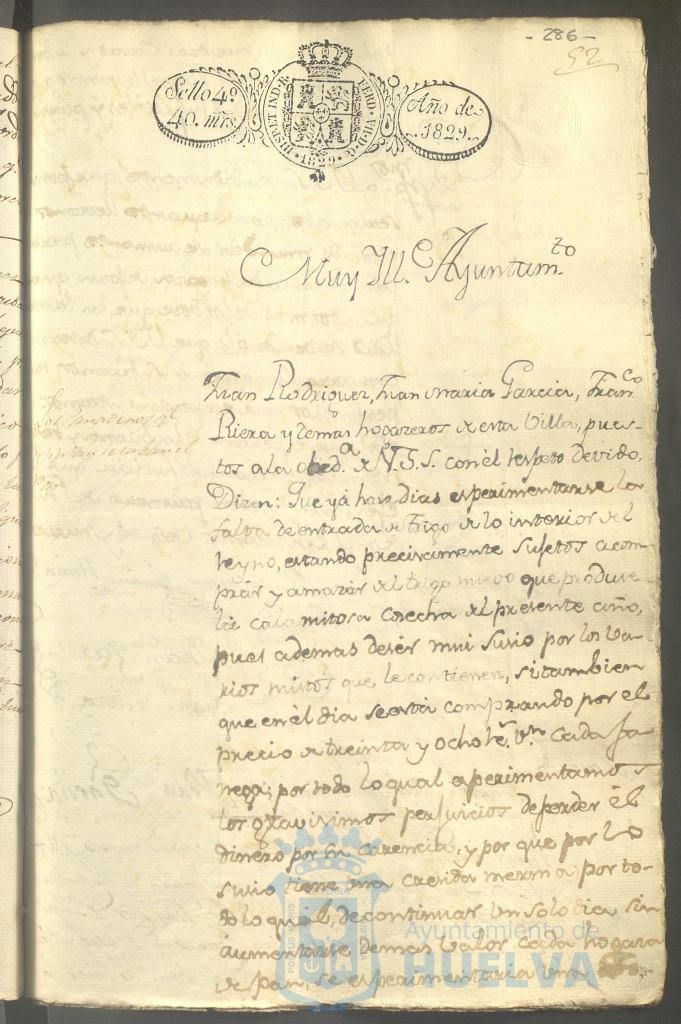 - 286 -
52
Sello 4º
40. mrs
HISP. ET IND. R. FERD. VII. D. G.
· 1829 ·
Año de
1829.
Muy Ill.e Ayuntam.to
Juan Rodriguez, Juan Maria Garcia, Fran.co
Riera y demas hogazeros de esta Villa, pues-
tos a la obed.a de N.S.S. con el respeto devido,
Dizen: Que yá haze dias esperimentarse la
falta de entrada de trigo de lo interior del
reyno, estando precisamente sujetos a com-
prár y amazár del trigo nuevo que produse
la calamitosa cosecha del presente año,
pues ademas de sér mui susio por los va-
rios mistos que le contienen, si tambien
que en él dia se está comprando por el
precio de treinta y ocho r.s v.n cada fa-
nega; por todo lo qual esperimentamos
los gravisimos perjuicios de perder él
dinero por su carencia, y por que por lo
susio tiene una cresida merma: por to-
do lo qual, de continuar un solo dia sin
aumentarse demas valor cada hogaza
de pan, se esperimentaria una
Ayuntamiento de
HUELVA